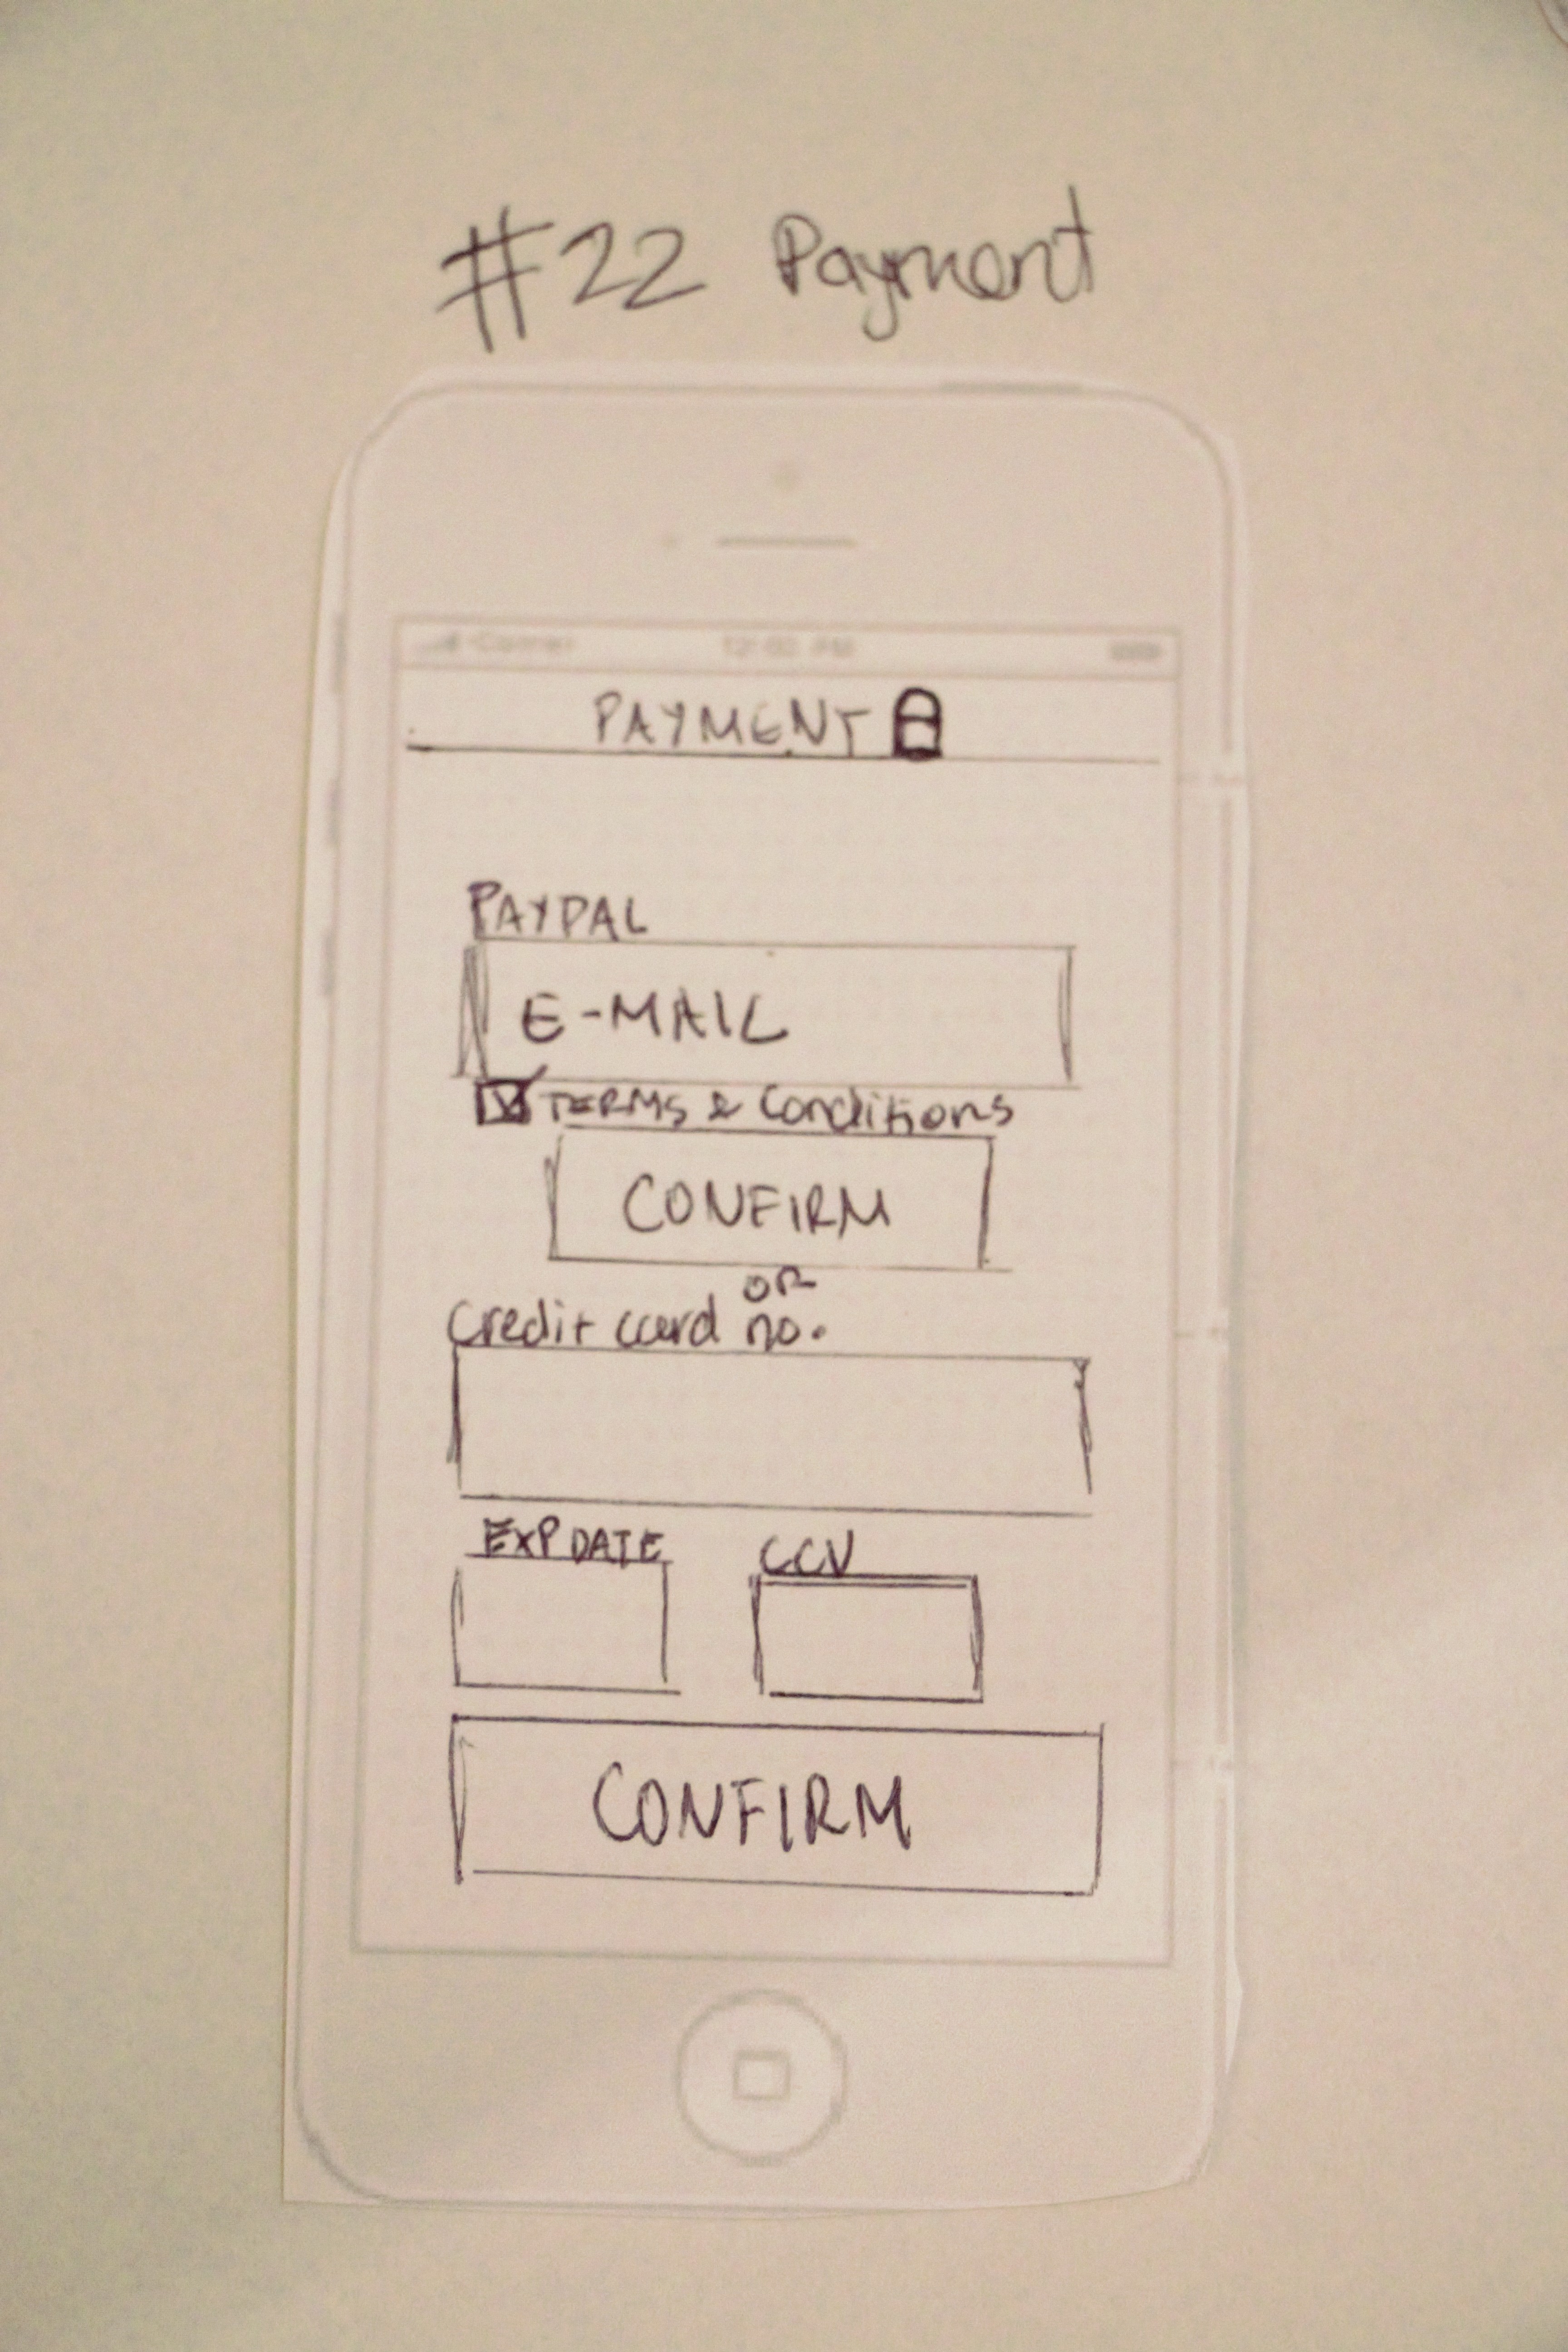 #22 Payment
Carrier 12:00 PM
PAYMENT
PAYPAL
E-MAIL
TERMS & Conditions
CONFIRM
OR
Credit card no.
EXP DATE CCV
CONFIRM